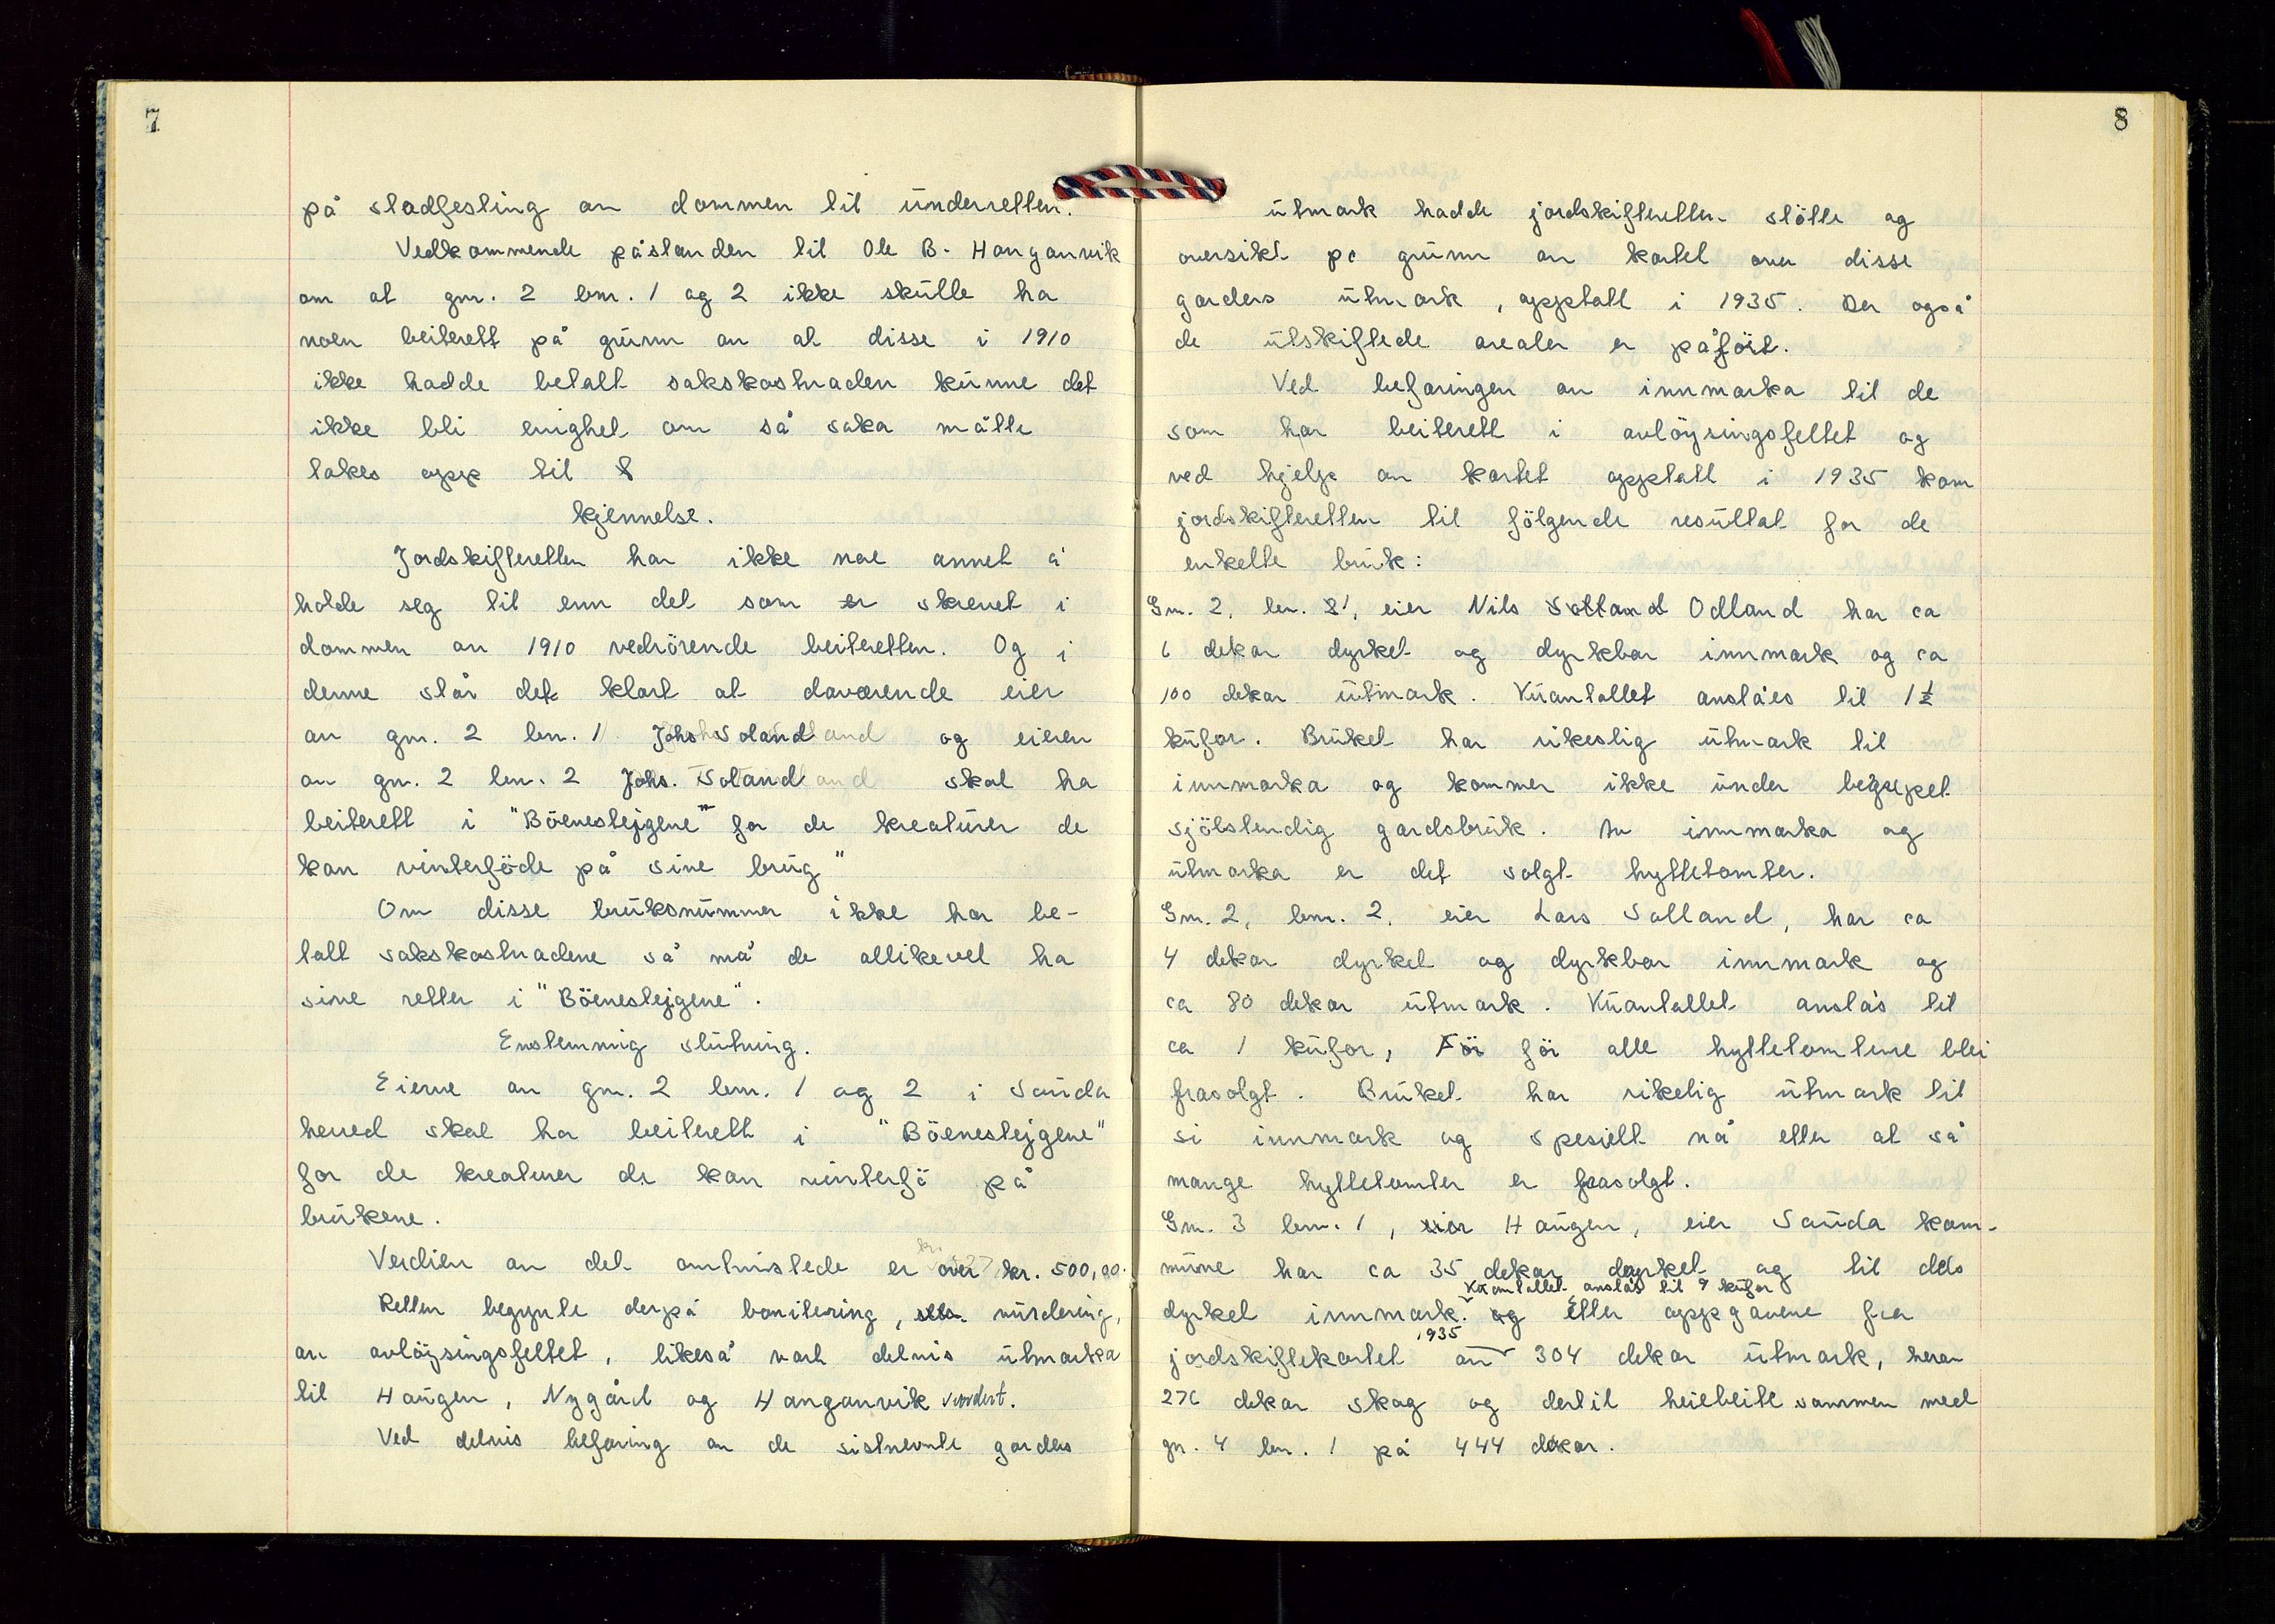 7
på stadfesting av dommen til underretten.
Vedkommende påstanden til Ole B. Hanganvik
om at gnr. 2 bnr. 1 og 2 ikke skulle ha
noen beiterett på grunn av at disse i 1910
ikke hadde betalt sakskostnaden kunne det
ikke bli enighet om så saka måtte
takes opp til
kjennelse.
Jordskifteretten har ikke noe annet å
holde seg til enn det som er skrevet i
dommen av 1910 vedrörende beiteretten. Og i
denne står det klart at daværende eier
av gnr. 2 bnr. 1 Johs Soland og eieren
av gnr. 2 bnr. 2 Johs. Soland skal ha
beiterett i "Böenesteigene" for de kreaturer de
kan vinterföde på sine brug"
Om disse bruksnummer ikke har be-
talt sakskostnadene så må de allikevel ha
sine retter i "Böenestejgene".
Enstemmig slutning.
Eierne av gnr. 2 bnr. 1 og 2 i Sauda
herred skal ha beiterett i "Böenestejgene"
for de kreaturer de kan vinterfö på
brukene.
Verdien av det omtvistede er over kr. 500,00.
Retten begynte derpå bonitering, vurdering,
av avlöysingsfeltet, likeså vart delvis utmarka
til Haugen, Nygård og Hanganvik vurdert.
Ved delvis befaring av de sistnevnte garders
8
utmark hadde jordskifteretten stötte og
oversikt på grunn av kartet over disse
garders utmark, opptatt i 1935. Der også
de utskiftede arealer er påfört.
Ved befaringen av innmarka til de
som har beiterett i avlöysingsfeltet og
ved hjelp av kartet opptatt i 1935 kom
jordskifteretten til fölgende resultat for de
enkelte bruk:
Gnr. 2, bnr. 1, eier Nils Solland Odland har ca
6 dekar dyrket og dyrkbar innmark og ca
100 dekar utmark. Kuantallet anslåes til 1½
kufor. Bruket har rikeslig utmark til
innmarka og kommer ikke under begrepet
sjölstendig gardsbruk. Av innmarka og
utmarka er det solgt hyttetomter.
Gnr. 2, bnr. 2, eier Lars Solland, har ca
4 dekar dyrket og dyrkbar innmark og
ca 80 dekar utmark. Kuantallet anslås til
ca 1 kufor, För för alle hyttetomtene blei
frasolgt. Bruket har rikelig utmark til
si innmark og spesielt nå etter at så
mange hyttetomter er frasolgt.
Gnr. 3 bnr. 1, eier Haugen, eier Sauda kom-
mune har ca 35 dekar dyrket og til dels
Kuantallet anslås til 9 kufor
dyrket innmark. og Etter oppgavene fra
1935
jordskiftekartet av 304 dekar utmark, herav
276 dekar skog og dertil heiebeite sammen med
gnr. 4 bnr. 1 på 444 dekar.